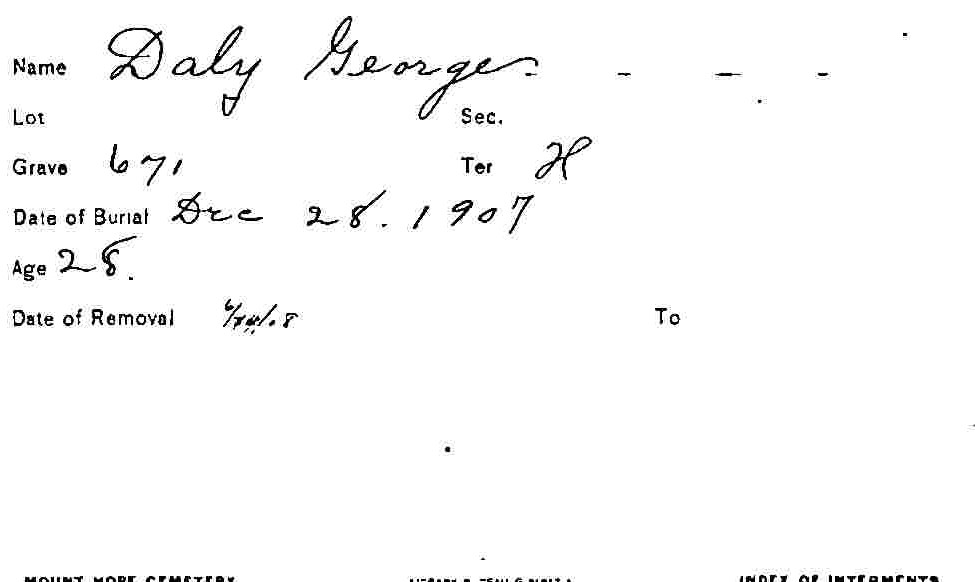 Name Daly George - - - -
Lot Sec.
Grave 671 Ter H
Date of Burial Dec 28. 1907
Age 28.
Date of Removal To
MOUNT HOPE CEMETERY INDEX OF INTERMENTS